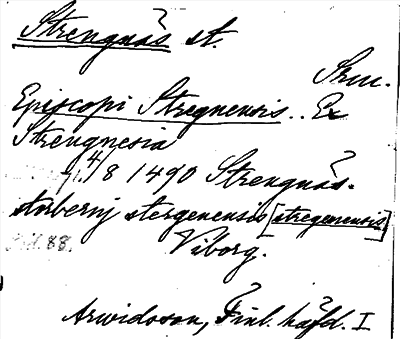 Strengnäs st.
Srm.
Episcopi Stregnensis .. Ex
Strengnesia
4/8 1490 Strengnäs.
storberij stergenensis [stregenensis]
88. Viborg.
Arwidsson, Finl. häfd. I